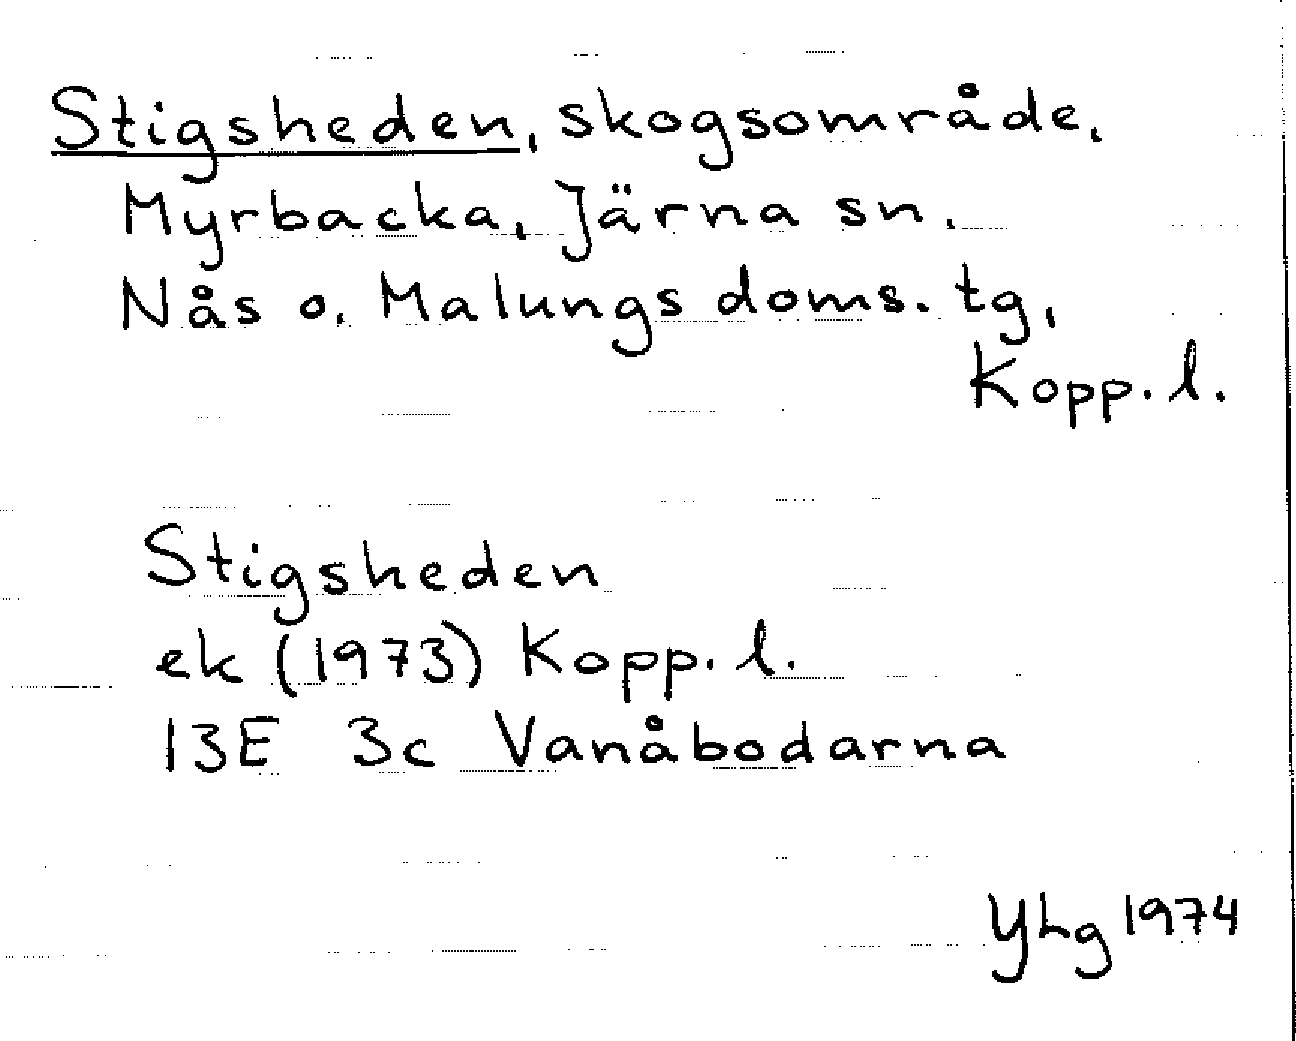 Stigsheden, skogsområde,
Myrbacka, Järna sn.
Nås o. Malungs doms. tg,
Kopp. l.
Stigsheden
ek (1973) Kopp. l.
13E 3c Vanåbodarna
YLg 1974